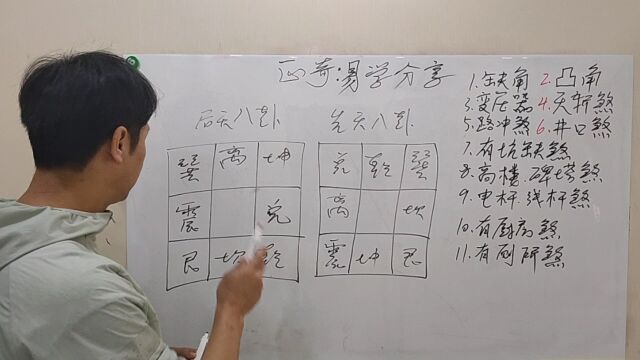 正奇:易学分享
后天八卦
巽 离 坤
震 兑
艮 坎 乾
先天八卦
兑 乾 巽
离 坎
震 坤 艮
1.缺角 2.凸角
3.变压器 4.天斩煞
5.路冲煞 6.井口煞
7.有坑缺煞
8.高楼.碑塔煞
9.电杆.线杆煞
10.有厨病煞
11.有厕所煞